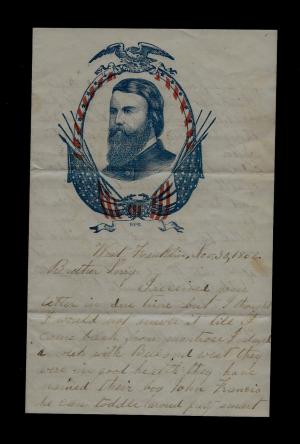 POPE.
West Franklin, Nov. 30, 186
Brother
I received your
letter in due time but I thought
I would not answer it till I
come back from montrose I stayed
a week with Bus and west they
were in good health they have
named their boy John Francis
he can toddle around pretty smart